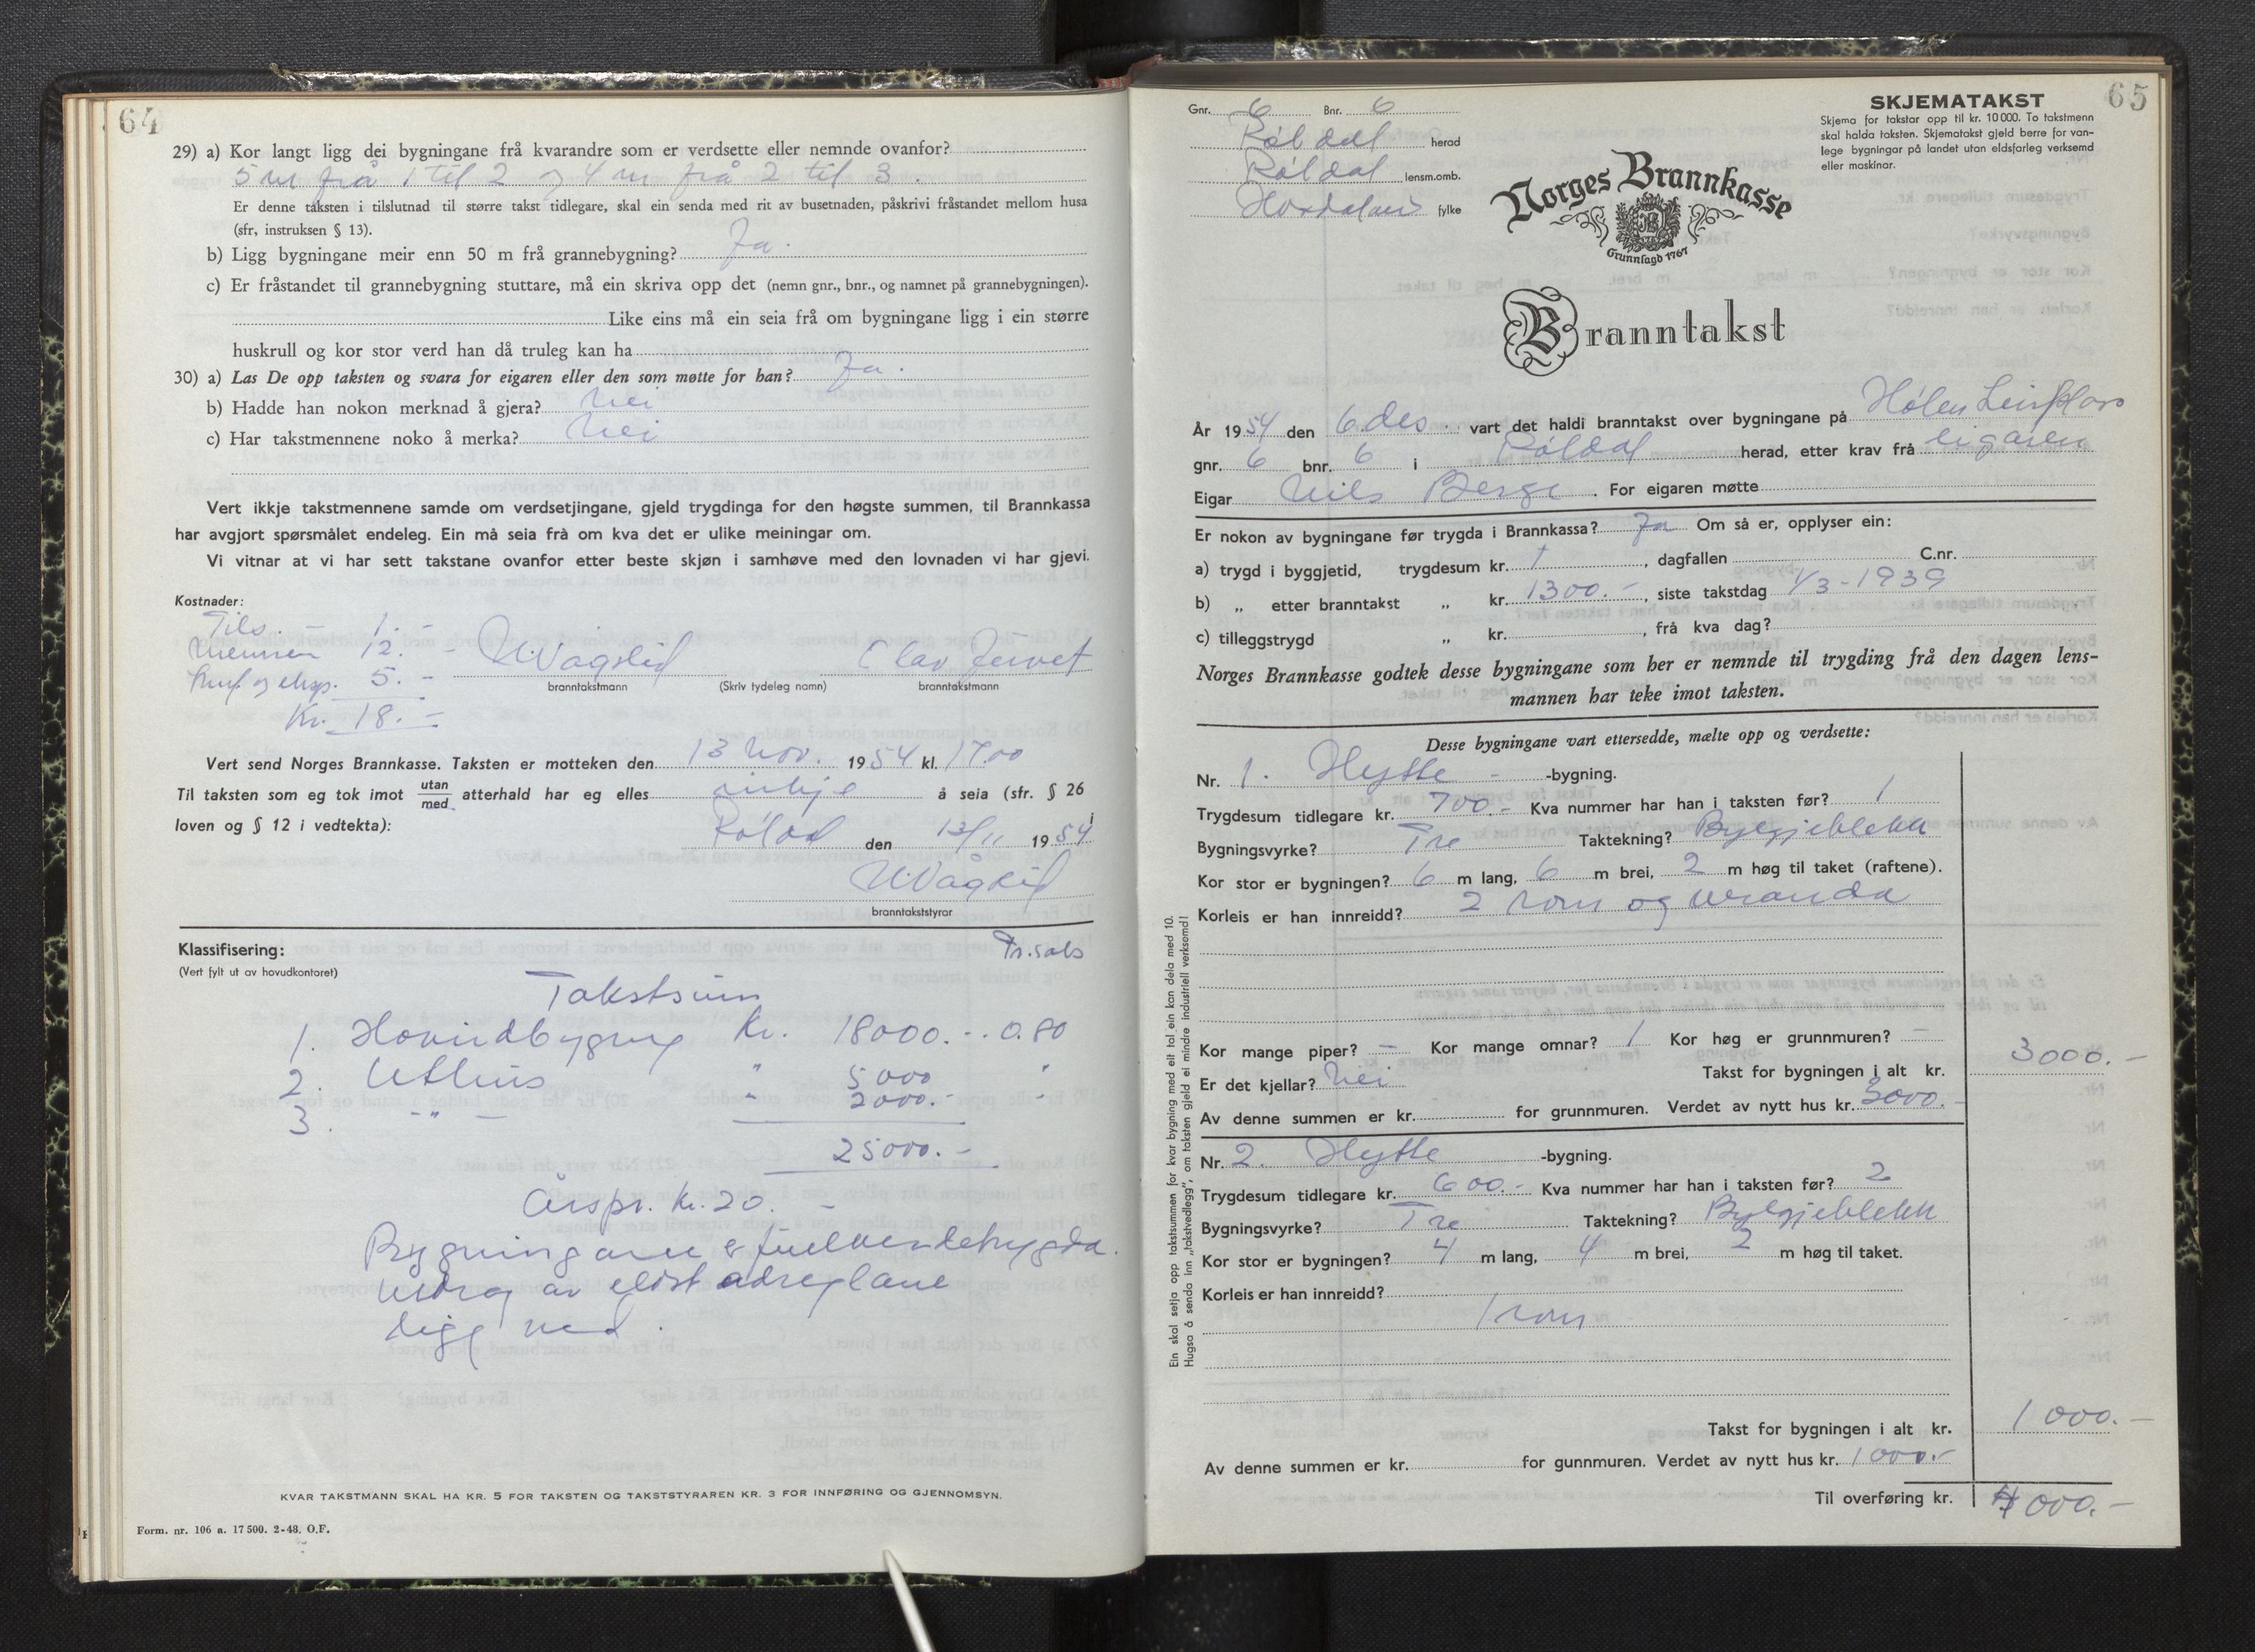 64
29) a) Kor langt ligg dei bygningane frå kvarandre som er verdsette eller nemnde ovanfor?
5 m frå 1 til 2 og 4 m frå 2 til 3.
Er denne taksten i tilslutnad til større takst tidlegare, skal ein senda med rit av busetnaden, påskrivi fråstandet mellom husa
(sfr, instruksen § 13).
b) Ligg bygningane meir enn 50 m frå grannebygning? Ja.
c) Er fråstandet til grannebygning stuttare, må ein skriva opp det (nemn gnr., bnr., og namnet på grannebygningen).
Like eins må ein seia frå om bygningane ligg i ein større
huskrull og kor stor verd han då truleg kan ha
30) a) Las De opp taksten og svara for eigaren eller den som møtte for han? Ja.
b) Hadde han nokon merknad å gjera? Nei
c) Har takstmennene noko å merka? Nei
Vert ikkje takstmennene samde om verdsetjingane, gjeld trygdinga for den høgste summen, til Brannkassa
har avgjort spørsmålet endeleg. Ein må seia frå om kva det er ulike meiningar om.
Vi vitnar at vi har sett takstane ovanfor etter beste skjøn i samhøve med den lovnaden vi har gjevi.
Kostnader:
Tils. - 1.-
Mennen 12.-
5.-
Kr. 18.-
N Vågslid
branntakstmann (Skriv tydeleg namn) branntakstmann
Vert send Norges Brannkasse. Taksten er motteken den 13 nov. 1954 kl. 17.00
Til taksten som eg tok imot utan/med atterhald har eg elles inkje å seia (sfr. § 26 i
loven og § 12 i vedtekta):
Røldal den 13/11 1954
N Vågslid
branntakststyrar
Klassifisering:
(Vert fylt ut av hovudkontoret)
Pr.sats
Takstsum
1. Hovudbygning Kr. 18000.- 0.80
2. Uthus " 5000 "
3. -"- " 2000.- "
25000.-
Årspr. kr. 20.-
Bygningane er
Utdrag av
ligg ved.
KVAR TAKSTMANN SKAL HA KR. 5 FOR TAKSTEN OG TAKSTSTYRAREN KR. 3 FOR INNFØRING OG GJENNOMSYN.
Form. nr. 106 a. 17500. 2-48. O.F.
65
Gnr. 6 Bnr. 6
Røldal herad
Røldal lensm.omb.
Hordaland fylke
SKJEMATAKST
Skjema for takstar opp til kr. 10 000. To takstmenn
skal halda taksten. Skjematakst gjeld berre for van-
lege bygningar på landet utan eldsfarleg verksemd
eller maskinar.
Norges Brannkasse
Grunnlagd 1767
Branntakst
År 1954 den 6. des. vart det haldi branntakst over bygningane på Hølen
gnr. 6 bnr. 6 i Røldal herad, etter krav frå eigaren
Eigar Nils Berge. For eigaren møtte
Er nokon av bygningane før trygda i Brannkassa? Ja Om så er, opplyser ein:
a) trygd i byggjetid, trygdesum kr. , dagfallen C.nr.
b) „ etter branntakst „ kr. 1300.-, siste takstdag 1/3-1939
c) tilleggstrygd „ kr. , frå kva dag?
Norges Brannkasse godtek desse bygningane som her er nemnde til trygding frå den dagen lens-
mannen har teke imot taksten.
Desse bygningane vart ettersedde, mælte opp og verdsette:
Nr. 1. Hytte -bygning.
Trygdesum tidlegare kr. 700.- Kva nummer har han i taksten før? 1
Bygningsvyrke? Tre Taktekning? Bylgjeblekk
Kor stor er bygningen? 6 m lang, 6 m brei, 2 m høg til taket (raftene).
Korleis er han innreidd? 2 rom og veranda
Kor mange piper? - Kor mange omnar? 1 Kor høg er grunnmuren? -
Er det kjellar? Nei Takst for bygningen i alt kr. 3000.-
Av denne summen er kr. for grunnmuren. Verdet av nytt hus kr. 3000.-
Nr. 2. Hytte -bygning.
Trygdesum tidlegare kr. 600.- Kva nummer har han i taksten før? 2
Bygningsvyrke? Tre Taktekning? Bylgjeblekk
Kor stor er bygningen? 4 m lang, 4 m brei, 2 m høg til taket.
Korleis er han innreidd?
1 rom
Takst for bygningen i alt kr. 1000.-
Av denne summen er kr. for gunnmuren. Verdet av nytt hus kr. 1000.-
Til overføring kr. 4000.-
Ein skal setja opp takstsummen for kvar bygning med eit tal ein kan dela med 10.
Hugsa å senda inn „takstvedlegg", om taksten gjeld ei mindre industriell verksemd!